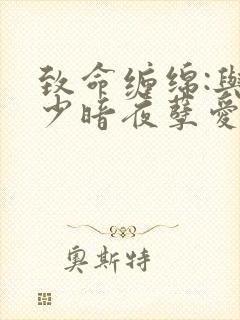 致命缠绵:與
少暗夜孽爱
奥斯特